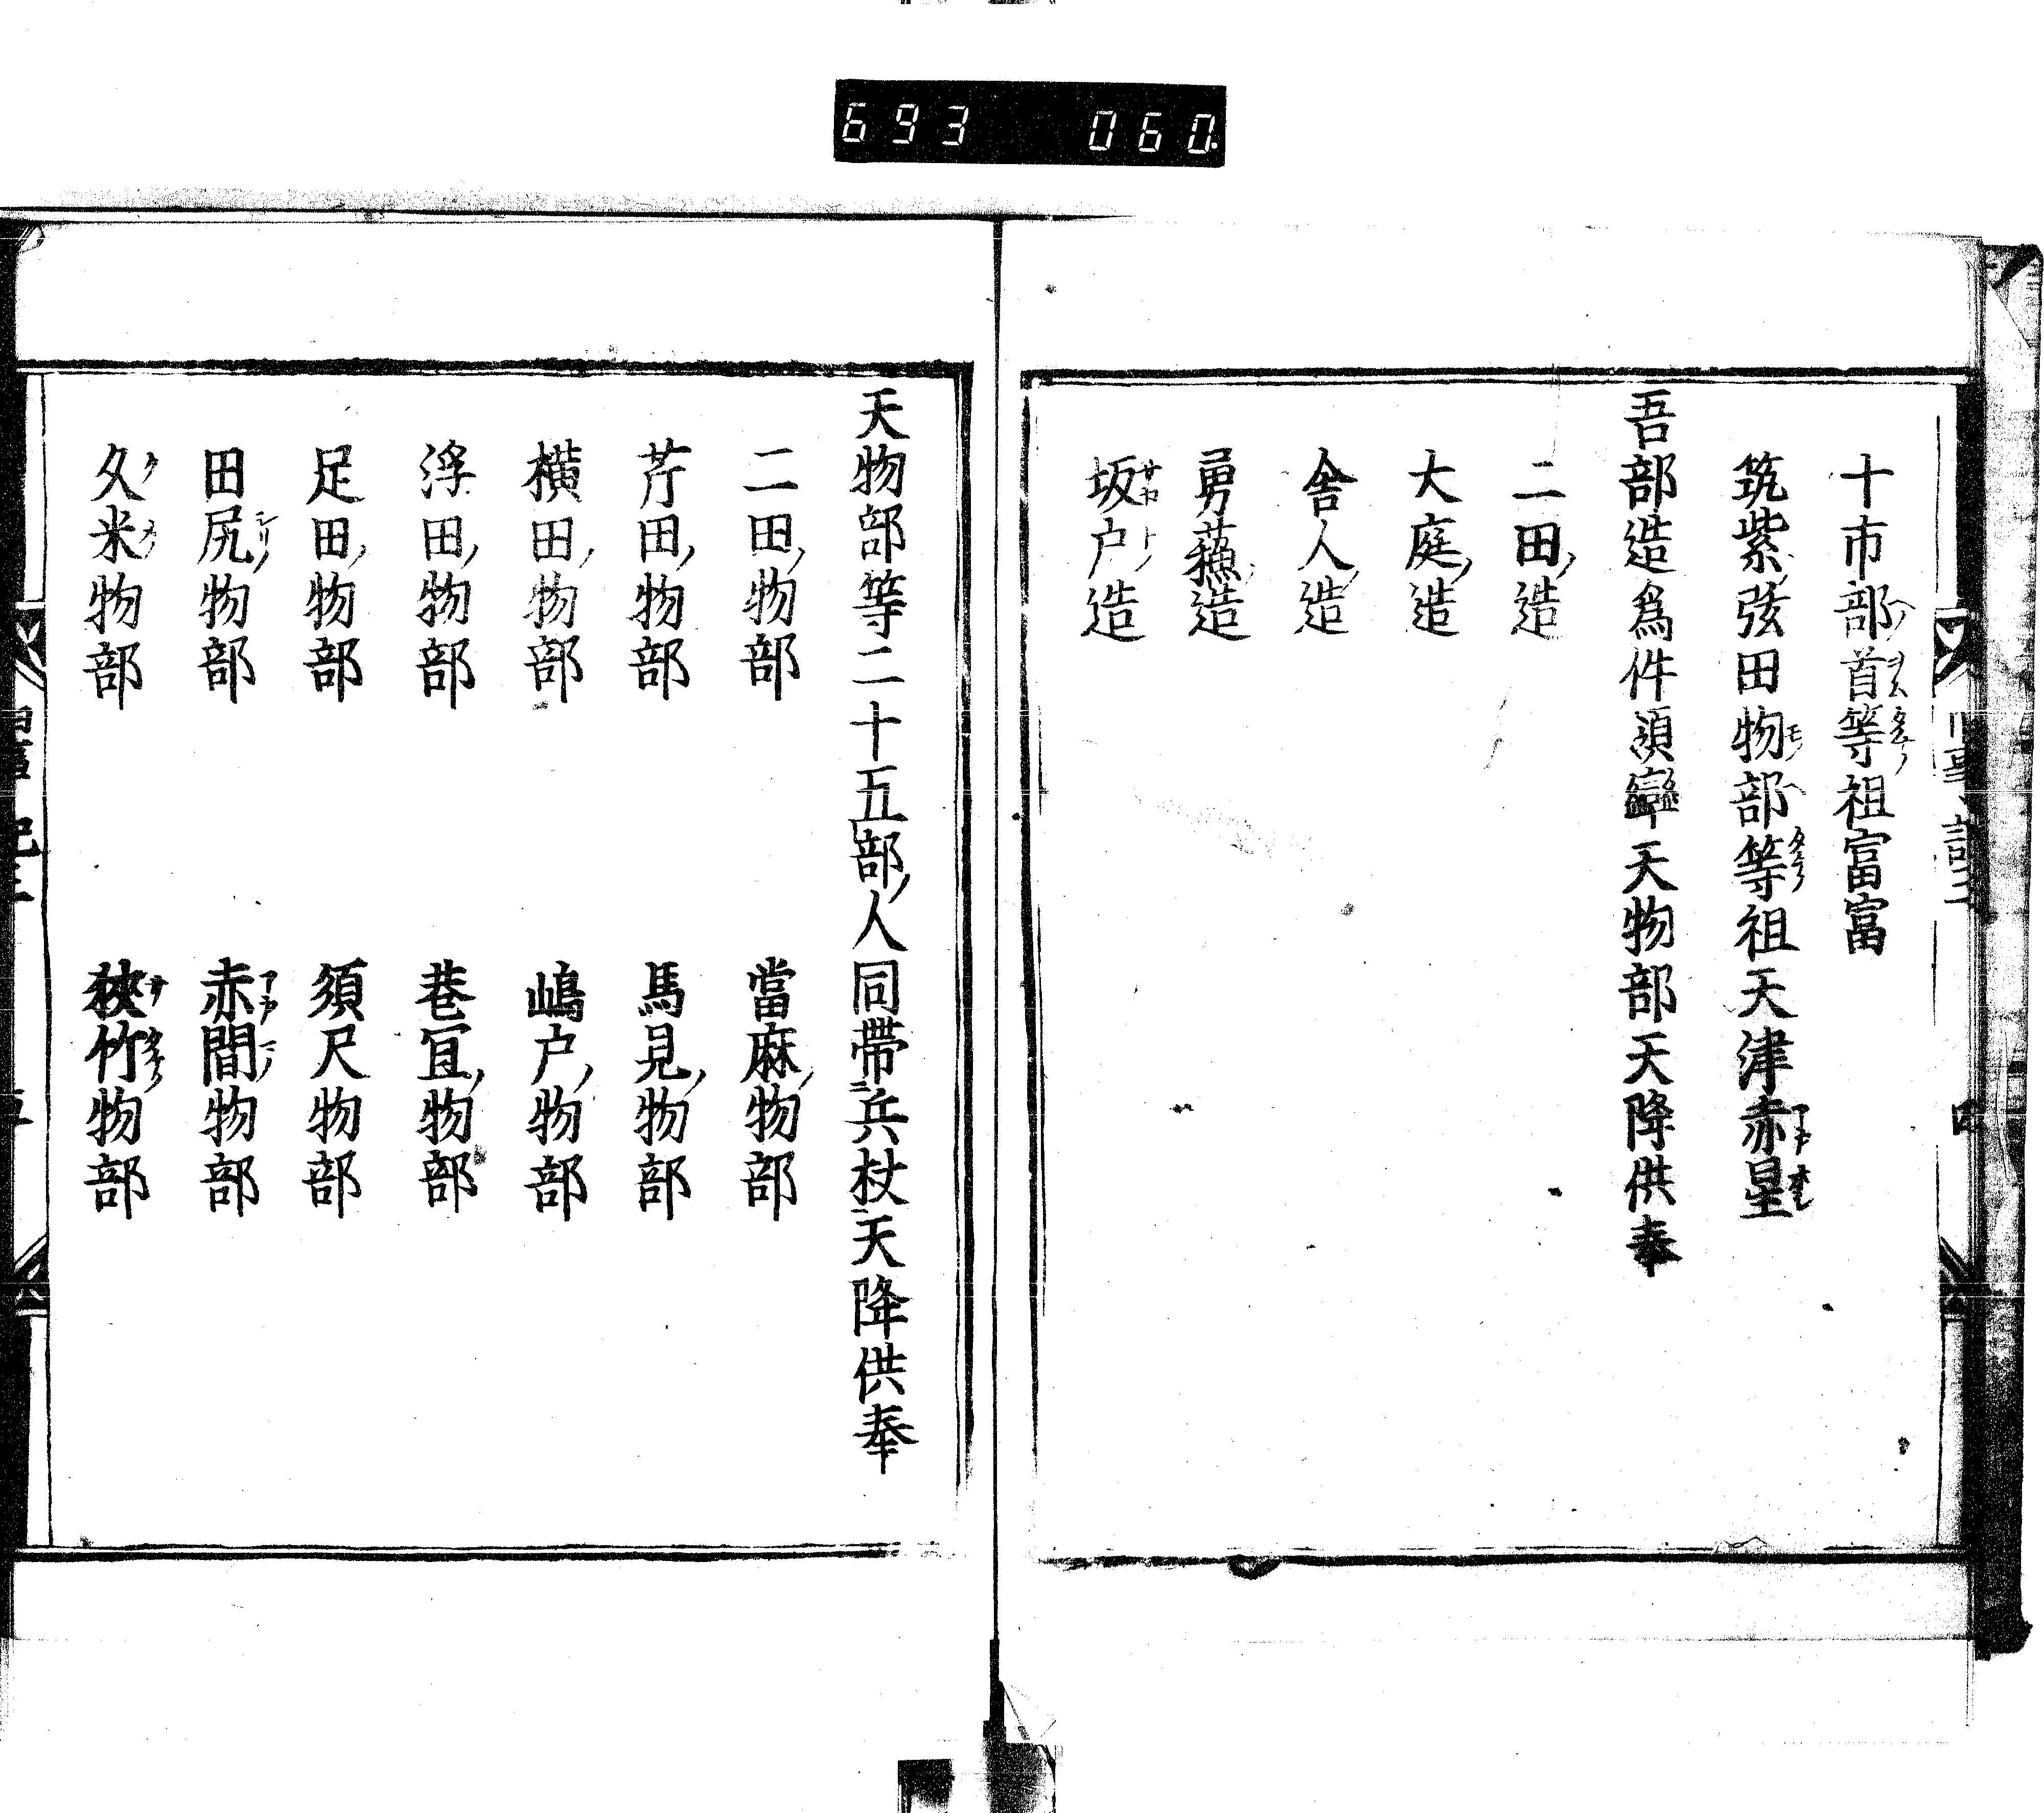 693 060
十市部首等祖富富
筑紫弦田物部等祖天津赤星
吾部造爲件領 天物部天降供奉
二田造
大庭造
舎人造
勇蘓造
坂戸造
四
天物部等二十五部人同帶兵杖天降供奉
二田物部 當麻物部
芹田物部 馬見物部
横田物部 嶋戸物部
浮田物部 巷冝物部
足田物部 須尺物部
田尻物部 赤間物部
久米物部 狭竹物部